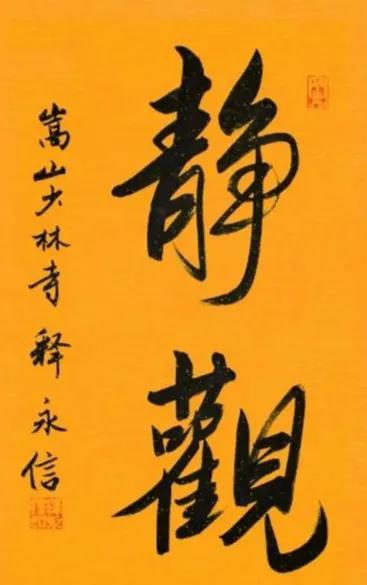 靜觀
嵩山少林寺 释永信